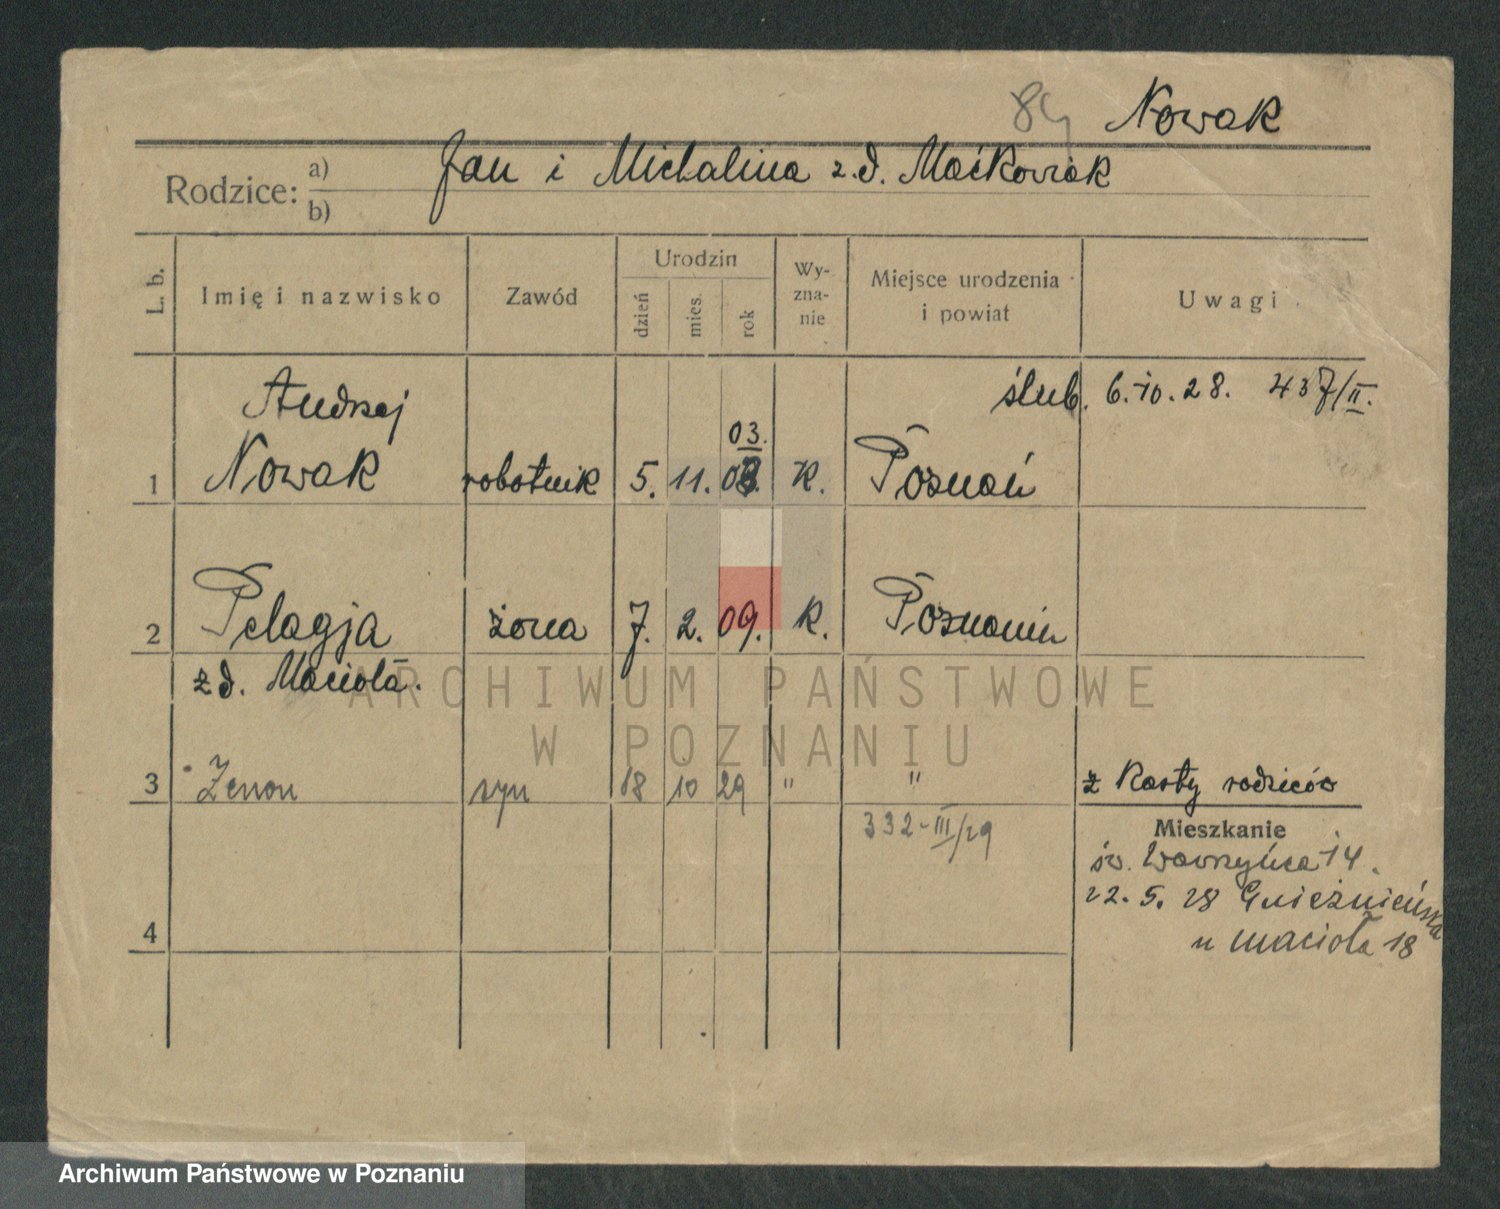 84 Nowak
Rodzice: a) Jan i Michalina z.d. Maćkowiak
b)
L. b. Imię i nazwisko Zawód Urodzin dzień mies. rok Wyznanie Miejsce urodzenia i powiat Uwagi
ślub. 6.10.28. 437/II.
Andrzej
03.
1 Nowak robotnik 5. 11. 03. K. Poznań
2 Pelagja żona 7. 2. 09. K. Poznaniu
z d. Macioła.
ARCHIWUM PAŃSTWOWE
W POZNANIU
3 Zenon syn 18 10 29 " " z Karty rodziców
332-III/29
Mieszkanie
św. Wawrzyńca 14.
22. 5. 28 Gnieźnieńska
4
u Macioła 18
Archiwum Państwowe w Poznaniu